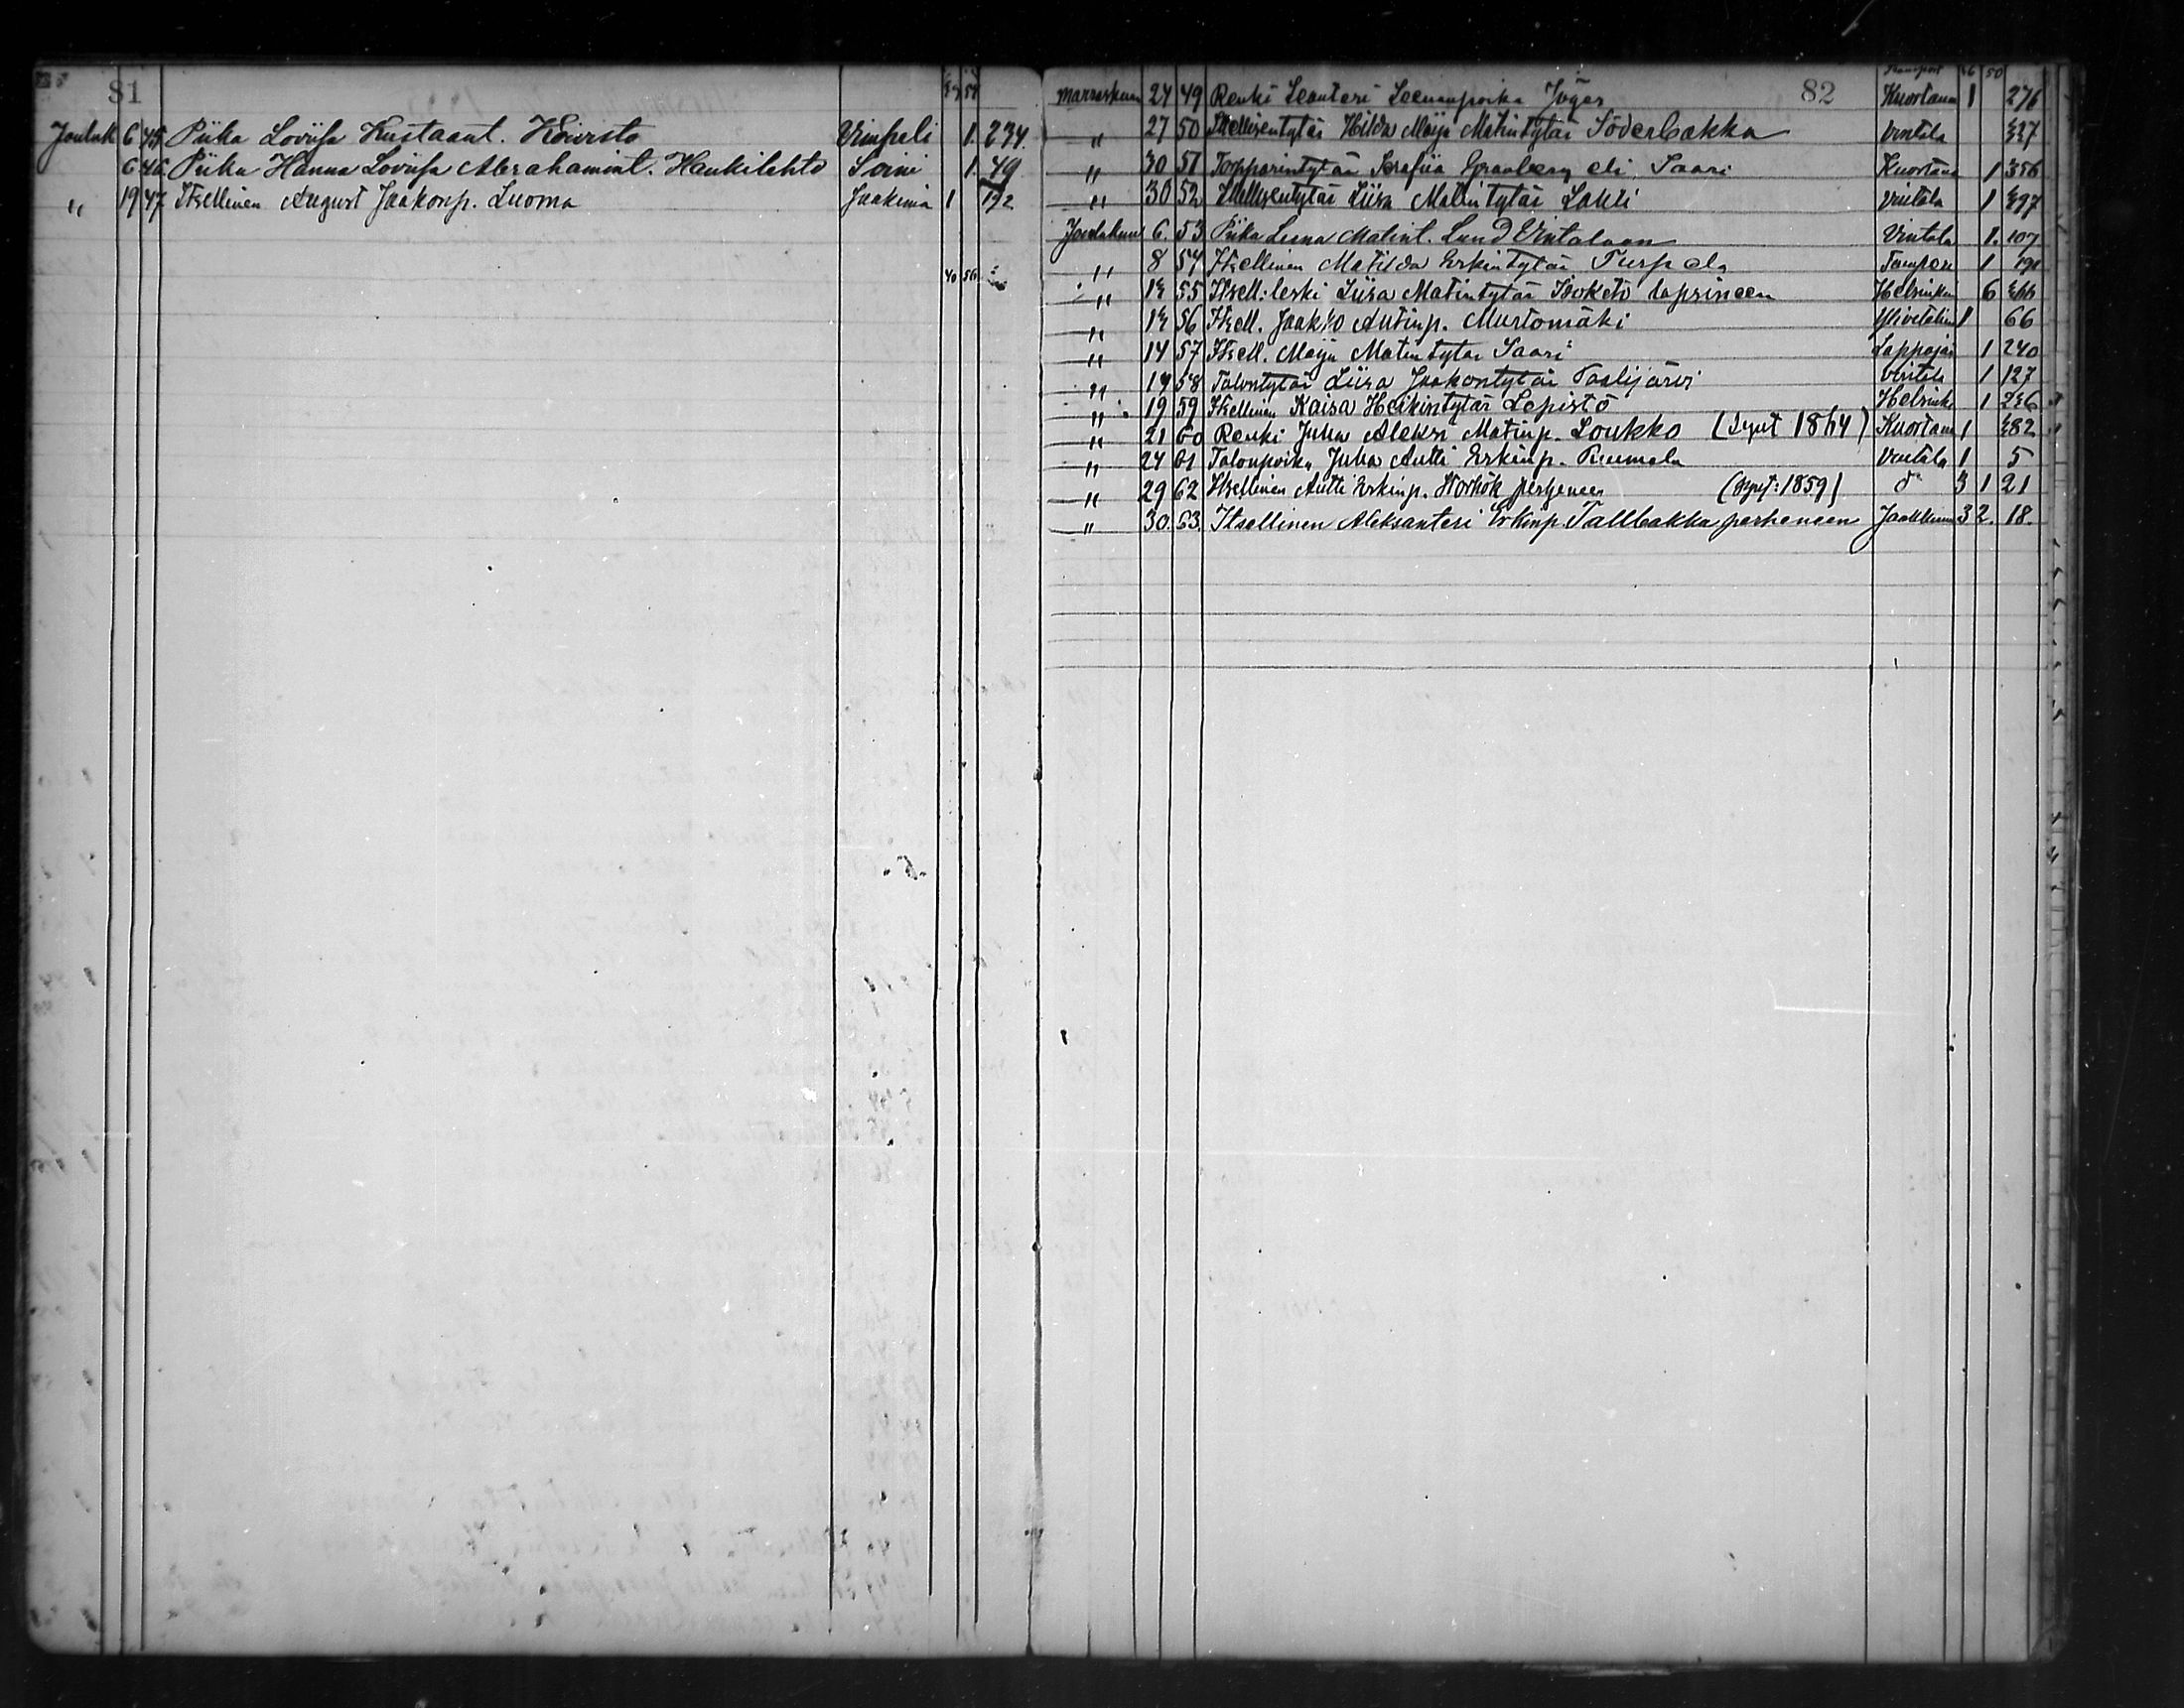 81
39 54
Jouluk 6 45 Piika Loviisa Kustaant. Koivisto Vimpeli 1. 234.
6 46 Piika Hanna Loviisa Abrahamint. Haukilehto Soini 1. 49
" 19 47 Itsellinen August Jaakonp. Luoma Jaakima 1 192
40 56
82
Transport 26 50
Marraskuun 24 49 Renki Leanteri Leenanpoika Jäger Kuortane 1 276
" 27 50 Itsellisentytär Hilda Maija Matintytär Söderbakka Vintala 327
" 30 51 Torpparintytär Serafiia Granberg eli Saari Kuortane 1 356
" 30 52 Itsellisentytär Liisa Matintytär Lahti Vintala 1 297
Joulukuu 6. 53 Piika Leena Matint. Lund Vintalaan Vintala 1. 107
" 8 54 Itsellinen Matilda Erkintytär Turpela Tampere 1 190
" 12 55 Itsell: leski Liisa Matintytär Isoketo lapsineen Helsinki 6 266
" 12 56 Itsell. Jaakko Antinp. Murtomäki Ylivetelin 1 66
" 14 57 Itsell. Maija Matintytär Saari Lappajär 1 240
" 19 58 Talontytär Liisa Jaakontytär Paalijärvi Vintala 1 127
" 19 59 Itsellinen Kaisa Heikintytär Lepistö Helsinki 1 226
" 21 60 Renki Juha Aleksi Matinp. Loukko (synt 1864) Kuortane 1 282
" 24 61 Talonpoika Juha Antti Erkinp. Ruumala Vintala 1 5
" 29 62 Itsellinen Antti Erkinp. Storhök perheneen (synt: 1859) d:o 3 1 21
" 30. 63. Itsellinen Aleksanteri Erkinp. Tallbakka perheneen Jaakkima 3 2. 18.